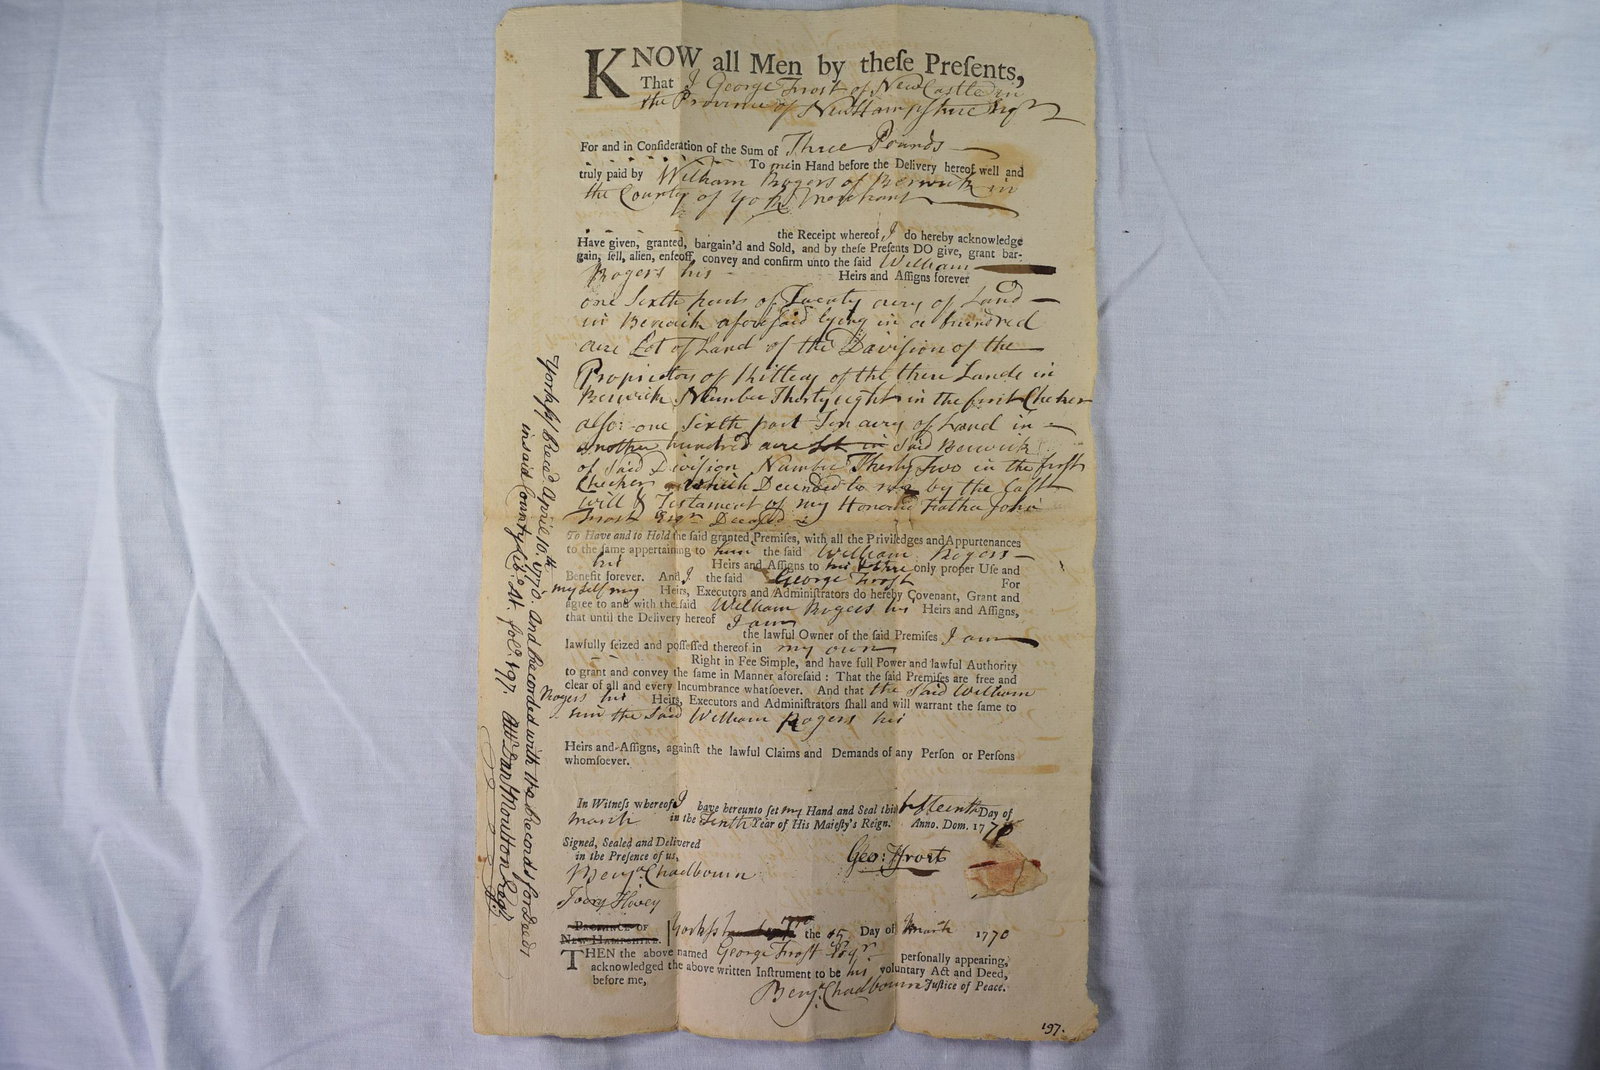 KNOW all Men by theſe Preſents,
That I George Frost of NewCastle in
the Province of New Hampſhire Esqr
For and in Conſideration of the Sum of Three Pounds
To me in Hand before the Delivery hereof well and
truly paid by William Rogers of Berwick in
the County of York Merchant
the Receipt whereof I do hereby acknowledge
Have given, granted, bargain'd and Sold, and by theſe Preſents DO give, grant bar-
gain, ſell, alien, enfeoff, convey and confirm unto the ſaid William
Rogers his Heirs and Aſſigns forever
one Sixth part of Twenty acres of Land
in Berwick aforeſaid lying in a hundred
acre Lot of Land of the Diviſion of the
Proprietors of Kittery of the three Lands in
Berwick Number Thirty eight in the first Checker
alſo: one Sixth part Ten acres of Land in
another hundred acre Lot in Said Berwick
of Said Diviſion Number Thirty Two in the first
Checker which Decended to me by the Last
will & Testament of my Honored Father John
Frost Esqr Deceased
To Have and to Hold the ſaid granted Premiſes, with all the Priviledges and Appurtenances
to the ſame appertaining to him the ſaid William Rogers
his Heirs and Aſſigns to his & their only proper Uſe and
Benefit forever. And I the ſaid George Frost For
myſelf my Heirs, Executors and Adminiſtrators do hereby Covenant, Grant and
agree to and with the ſaid William Rogers his Heirs and Aſſigns,
that until the Delivery hereof I am
the lawful Owner of the ſaid Premiſes I am
lawfully ſeized and poſſeſſed thereof in my own
Right in Fee Simple, and have full Power and lawful Authority
to grant and convey the ſame in Manner aforeſaid: That the ſaid Premiſes are free and
clear of all and every Incumbrance whatſoever. And that the Said William
Rogers his Heirs, Executors and Adminiſtrators ſhall and will warrant the ſame to
him the Said William Rogers his
Heirs and Aſſigns, againſt the lawful Claims and Demands of any Perſon or Perſons
whomſoever.
In Witneſs whereof I have hereunto ſet my Hand and Seal this fifteenth Day of
March in the Tenth Year of His Majeſty's Reign. Anno. Dom. 1770
Signed, Sealed and Delivered
in the Preſence of us,
Geo: Frost
Benja Chadbourn
Ivory Hovey
PROVINCE OF
NEW-HAMPSHIRE. Yorkſs the 15 Day of March 1770
THEN the above named George Frost Esqr perſonally appearing,
acknowledged the above written Inſtrument to be his voluntary Act and Deed,
before me,
Benja Chadbourn Juſtice of Peace.
197.
Yorkſs Reced April 10th. 1770. And Recorded with the Records for Deeds
in said County Lib: fol. 197. Attr Danl Moulton Regr